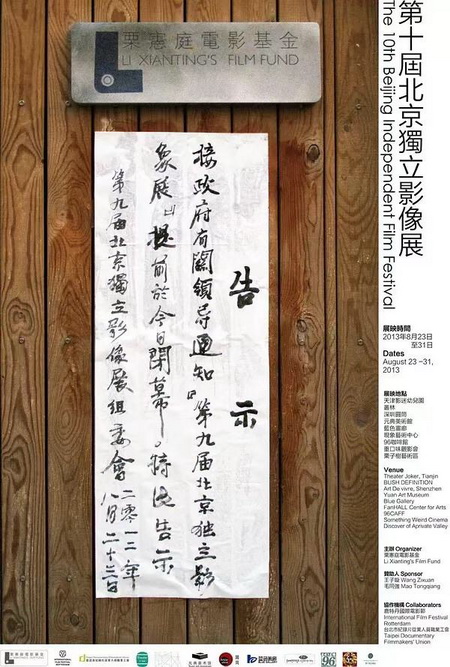 栗憲庭電影基金
LI XIANTING'S FILM FUND
告示
接政府有關領导通知『第九届北京独立影
象展』提前於今日閉幕。特此告示
第九届北京獨立影像展組委會二零一二年
八月二十三日
第十屆北京獨立影像展
The 10th Beijing Independent Film Festival
展映時間
2013年8月23日
至31日
Dates
August 23 –31,
2013
展映地點
天津影迷幼兒園
叢林
深圳圓筒
元典美術館
藍色畫廊
現象藝術中心
96咖啡館
重口味觀影會
栗子樹藝術區
Venue
Theater Joker, Tianjin
BUSH DEFINITION
Art De vivre, Shenzhen
Yuan Art Museum
Blue Gallery
FanHALL Center for Arts
96CAFF
Something Weird Cinema
Discover of Aprivate Valley
主辦 Organizer
栗憲庭電影基金
Li Xianting's Film Fund
贊助人 Sponsor
Wang Zixuan
Mao Tongqiang
協作機構 Collaborators
鹿特丹國際電影節
International Film Festival
Rotterdam
台北市紀錄片從業人員職業工會
Taipei Documentary
Filmmakers' Union